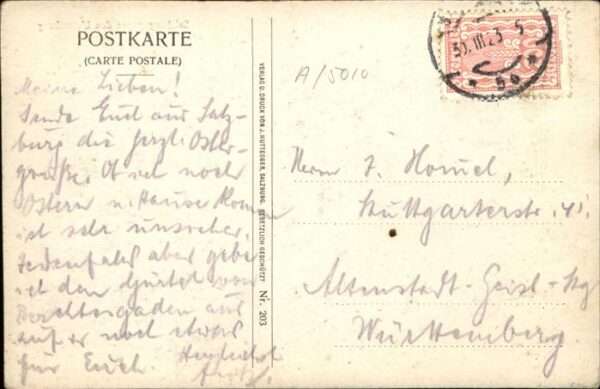 POSTKARTE
(CARTE POSTALE)
Meine Lieben!
Sende Euch aus Salz-
burg die herzl. Oster-
grüße. Ob ich noch
Ostern n. Hause komme
ist sehr unsicher.
Jedenfalls aber gebe
ich den Gürtel von
Berchtesgaden aus
auf er noch etwas
für Euch. Herzlichst
VERLAG U. DRUCK VON J. HUTTEGGER, SALZBURG. GESETZLICH GESCHÜTZT Nr. 203
30.III.23 5
A/5010
Herrn J.
Stuttgarterstr. 41.
Altenstadt-Geisl-Stg
Württemberg.